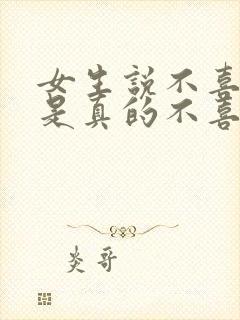 女生説不喜
是真的不喜
炎哥